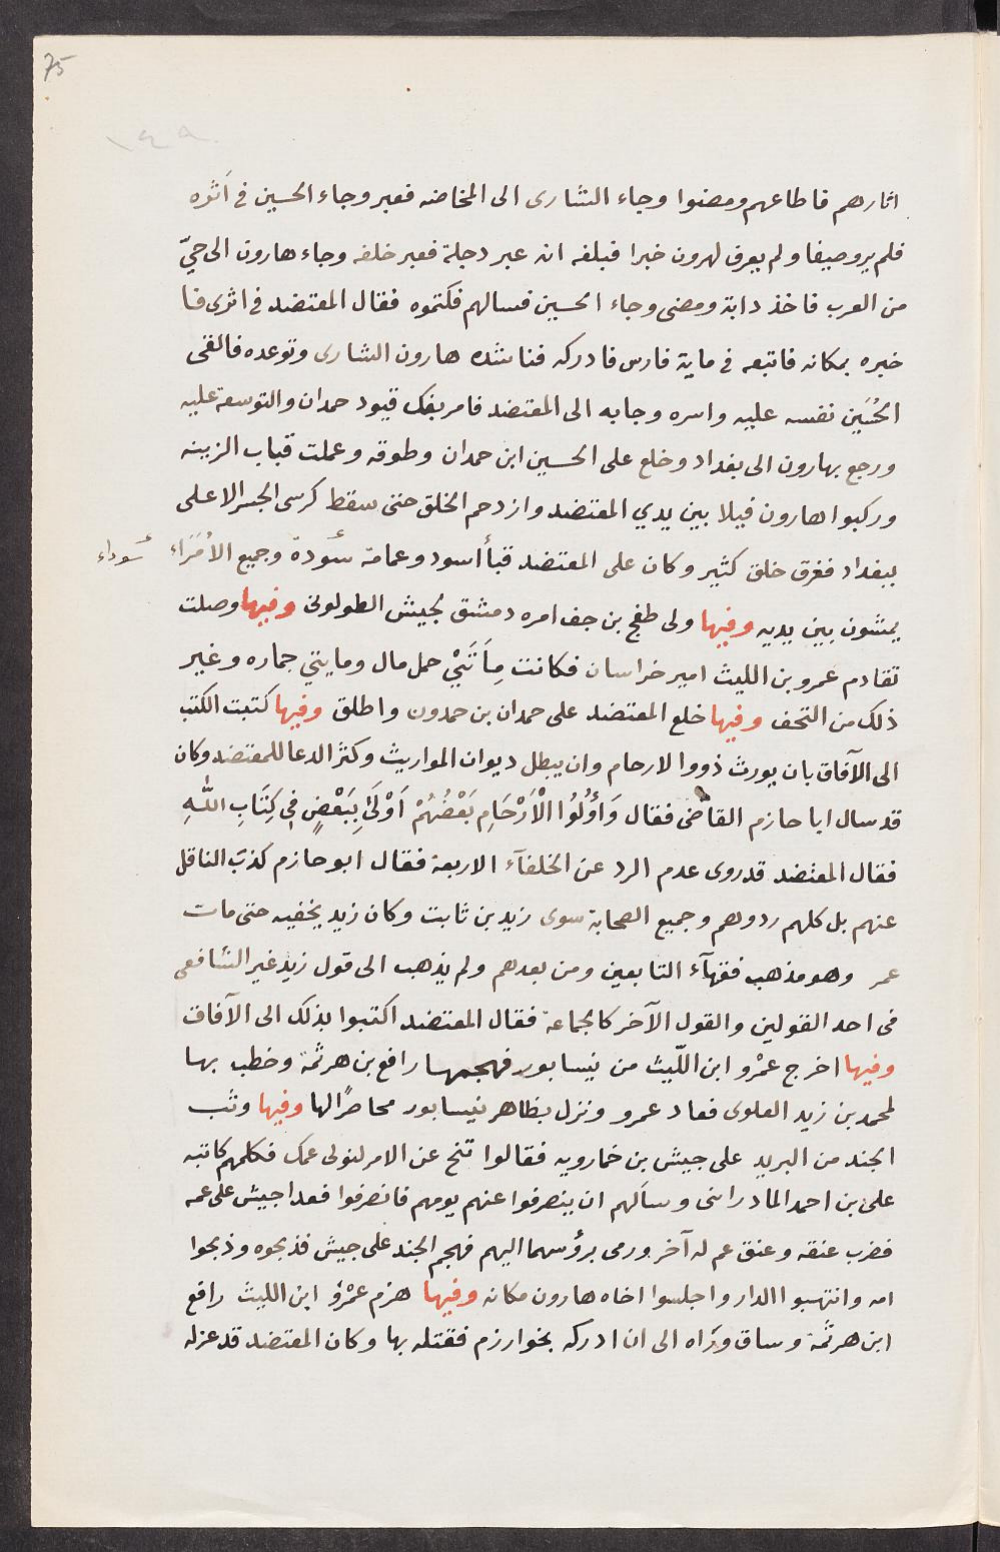 75
١٤٩
اثارهم فاطاعهم ومضوا وجاء الشارى الى المخاضه فعبر وجاء الحسين فى اَثره
فلم ير وصيفا ولم يعرف لهرون خبرا فبلغه انه عبر دجلة فعبر خلفه وجاء هارون الى حيّ
من العرب فاخذ دابة ومضى وجاء الحسين فسالهم فكتموه فقال المعتضد فى اثرى فا
خبره بمكانه فاتبعه فى ماية فارس فادركه فناشده هارون الشارى وتوعده فالقى
الحُسَين نفسه عليه واسره وجابه الى المعتضد فامر بفك قيود حمدان والتوسعة عليه
ورجع بهارون الى بغداد وخلع على الحسين ابن حمدان وطوقه وعملت قباب الزينه
وركبوا هارون فيلا بين يدي المعتضد وازدحم الخلق حتى سقط كرسى الجسر الاعلى
ببغداد فغرق خلق كثير وكان على المعتضد قبأ أسود وعمامة سودة وجميع الاُمَرَاء
سوداء
يمشون بين يديه وفيها ولى طغج بن جف امره دمشق لجيش الطولونى وفيها وصلت
تقادم عمرو بن الليث امير خراسان فكانت مِاَتَىْ حمل مال ومايتي جماره وغير
ذلك من التحف وفيها خلع المعتضد على حمدان بن حمدون واطلق وفيها كتبت الكتب
الى الآفاق بان يورث ذووا الارحام وان يبطل ديوان المواريث وكثر الدعا للمعتضد وكان
قد سال ابا حازم القاضى فقال وَأُولُوا الْأَرْحَامِ بَعْضُهُمْ اَوْلَىٰ بِبَعْضٍ فِى كِتَابِ اللّٰهِ
فقال المعتضد قد روى عدم الرد عن الخلفآء الاربعة فقال ابو حازم كذب الناقل
عنهم بل كلهم ردوهم وجميع الصحابة سوى زيد بن ثابت وكان زيد يخفيه حتى مات
عمر وهو مذهب فقهآء التابعين ومن بعدهم ولم يذهب الى قول زيد غير الشافعى
فى احد القولين والقول الآخر كالجماعة فقال المعتضد اكتبوا بذلك الى الآفاق
وفيها اخرج عمْرو ابن اللّيث من نيسابور فهجمها رافع بن هرثمة وخطب بها
لمحمد بن زيد العلوى فعاد عمرو ونزل بظاهر نيسابور محاصرًا لها وفيها وثب
الجند من البريد على جيش بن خمارويه فقالوا تنح عن الامر لنولى عمك فكلمهم كاتبه
على بن احمد المادرانى وسألهم ان ينصرفوا عنهم يومهم فانصرفوا فعدا جيش على عمه
فضرب عنقه وعنق عم له آخر ورمى برؤسهما اليهم فهجم الجند على جيش فذبحوه وذبحوا
امه وانتهبوا الدار واجلسوا اخاه هارون مكانه وفيها هزم عمْرُو ابن الليث رافع
ابن هرثمة وساق ورَاه الى ان ادركه بخوارزم فقتله بها وكان المعتضد قد عزله